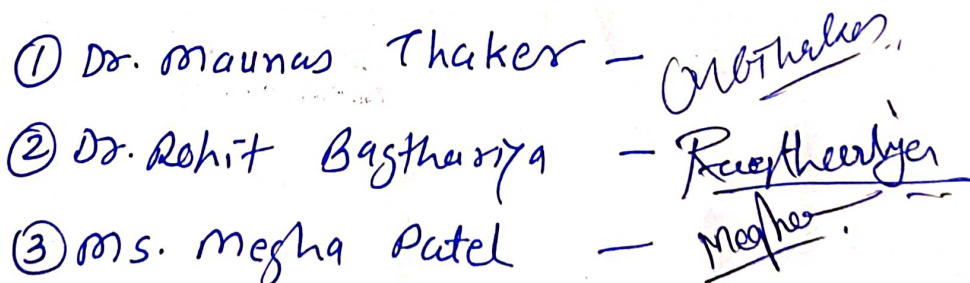 ① Dr. Maunas Thaker –
② Dr. Rohit Bagthariya –
③ Ms. Megha Patel – Megha